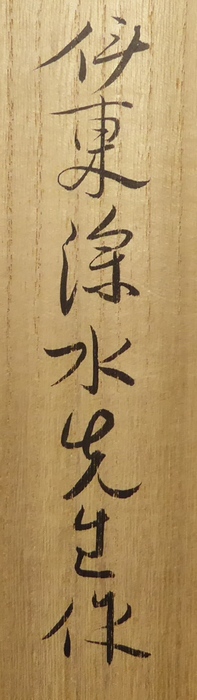 伊東深水先生作